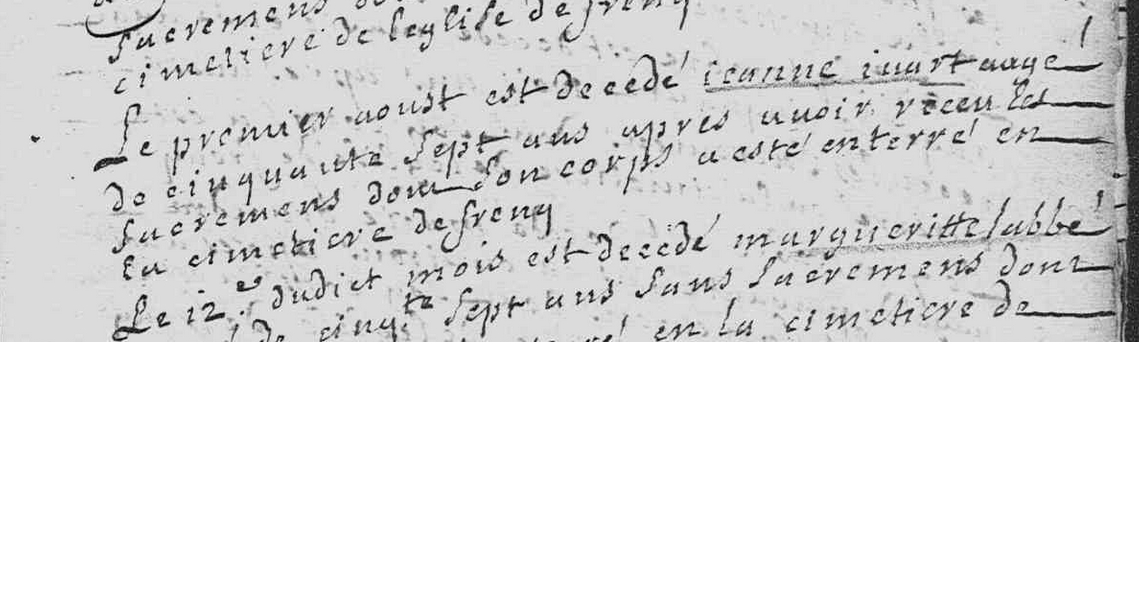 sacremens
cimetiere de leglise de freny
Le premier aoust est decedé ieanne iuart aagé
de cinquante sept ans apres auoir receu les
sacremens dont son corps a esté enterré en
la cimetiere de freny
Le 12.e dudict mois est decedé margueritte labbé
de cinq.te sept ans sans sacremens dont
en la cimetiere de